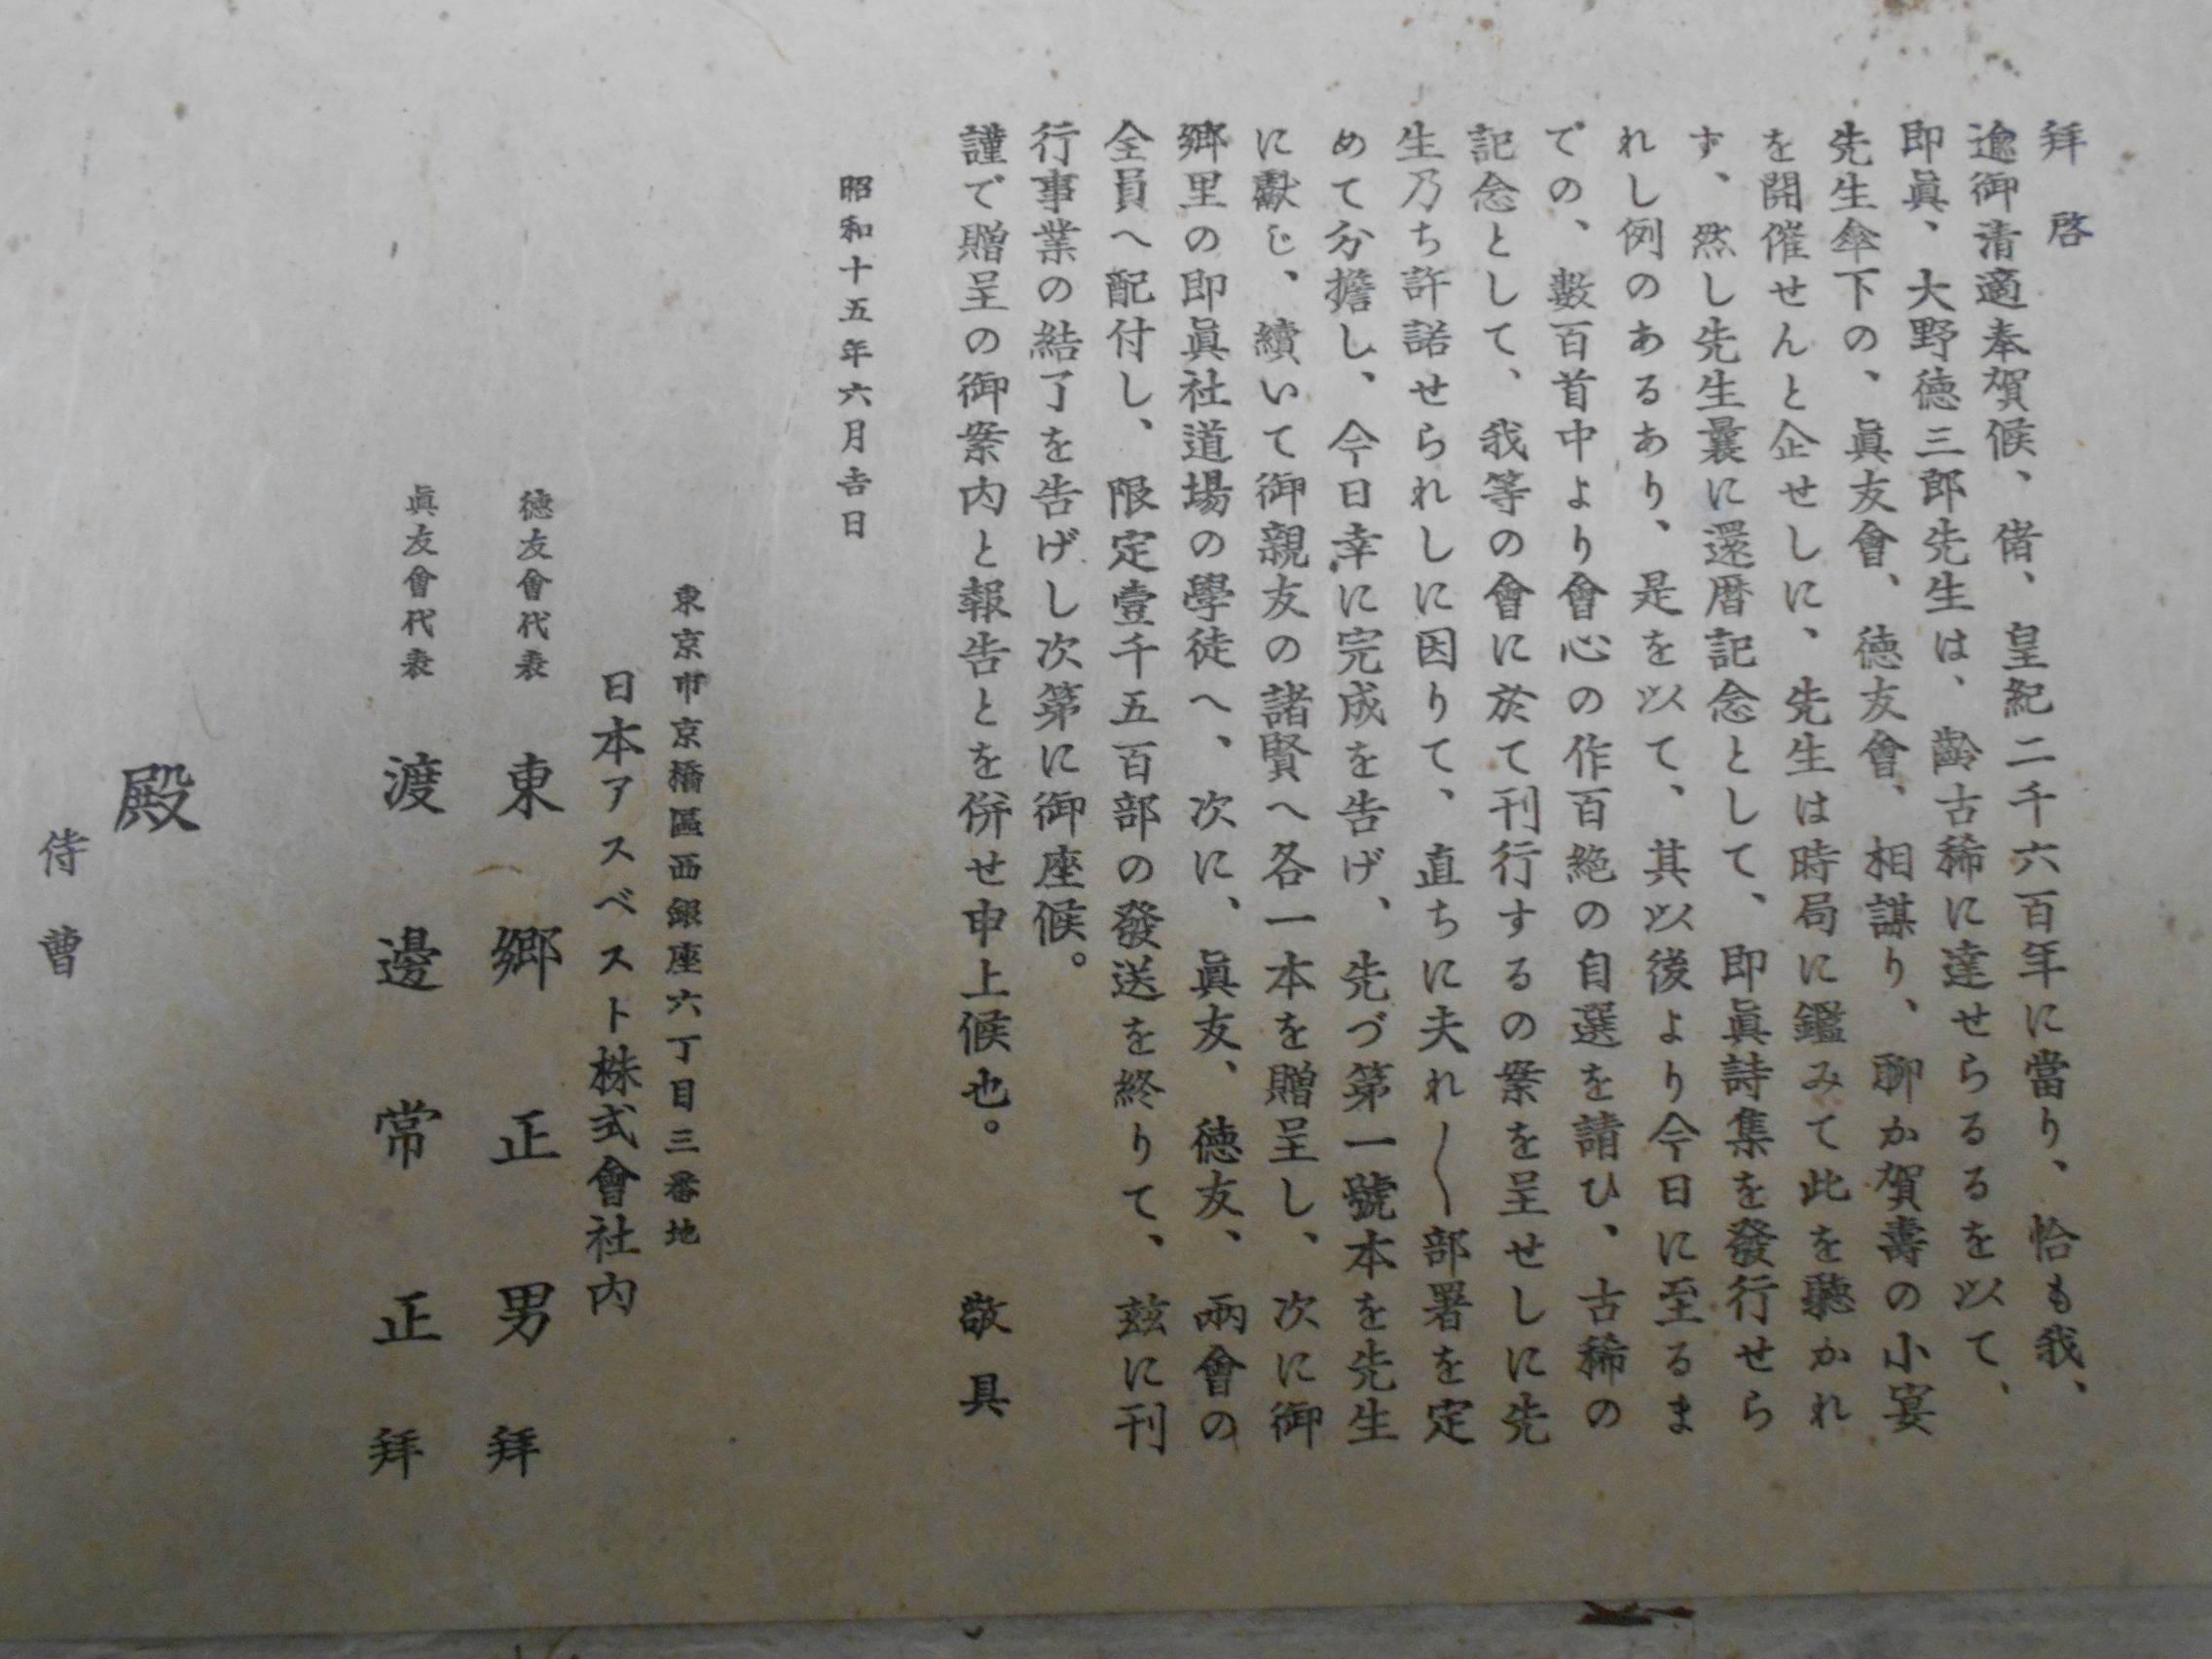 拜啓
逾御清適奉賀候、偖、皇紀二千六百年に當り、恰も我、
即眞、大野徳三郎先生は、齡古稀に達せらるるを以て、
先生傘下の、眞友會、徳友會、相謀り、聊か賀壽の小宴
を開催せんと企せしに、先生は時局に鑑みて此を聽かれ
ず、然し先生曩に還暦記念として、即眞詩集を發行せら
れし例のあるあり、是を以て、其以後より今日に至るま
での、數百首中より會心の作百絶の自選を請ひ、古稀の
記念として、我等の會に於て刊行するの案を呈せしに先
生乃ち許諾せられしに因りて、直ちに夫れ〱部署を定
めて分擔し、今日幸に完成を告げ、先づ第一號本を先生
に獻じ、續いて御親友の諸賢へ各一本を贈呈し、次に御
郷里の即眞社道場の學徒へ、次に、眞友、徳友、兩會の
全員へ配付し、限定壹千五百部の發送を終りて、茲に刊
行事業の結了を告げし次第に御座候。
謹で贈呈の御案内と報告とを併せ申上候也。敬具
昭和十五年六月吉日
東京市京橋區西銀座六丁目三番地
日本アスベスト株式會社内
徳友會代表 東郷正男拜
眞友會代表 渡邊常正拜
殿
侍曹